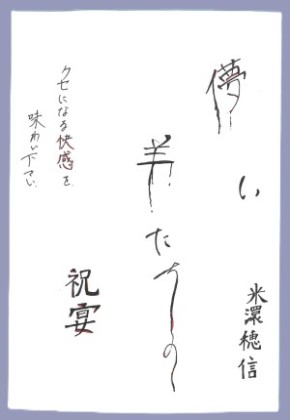 儚い
羊たちの
祝宴
米澤穂信
クセになる快感を
味わい下さい